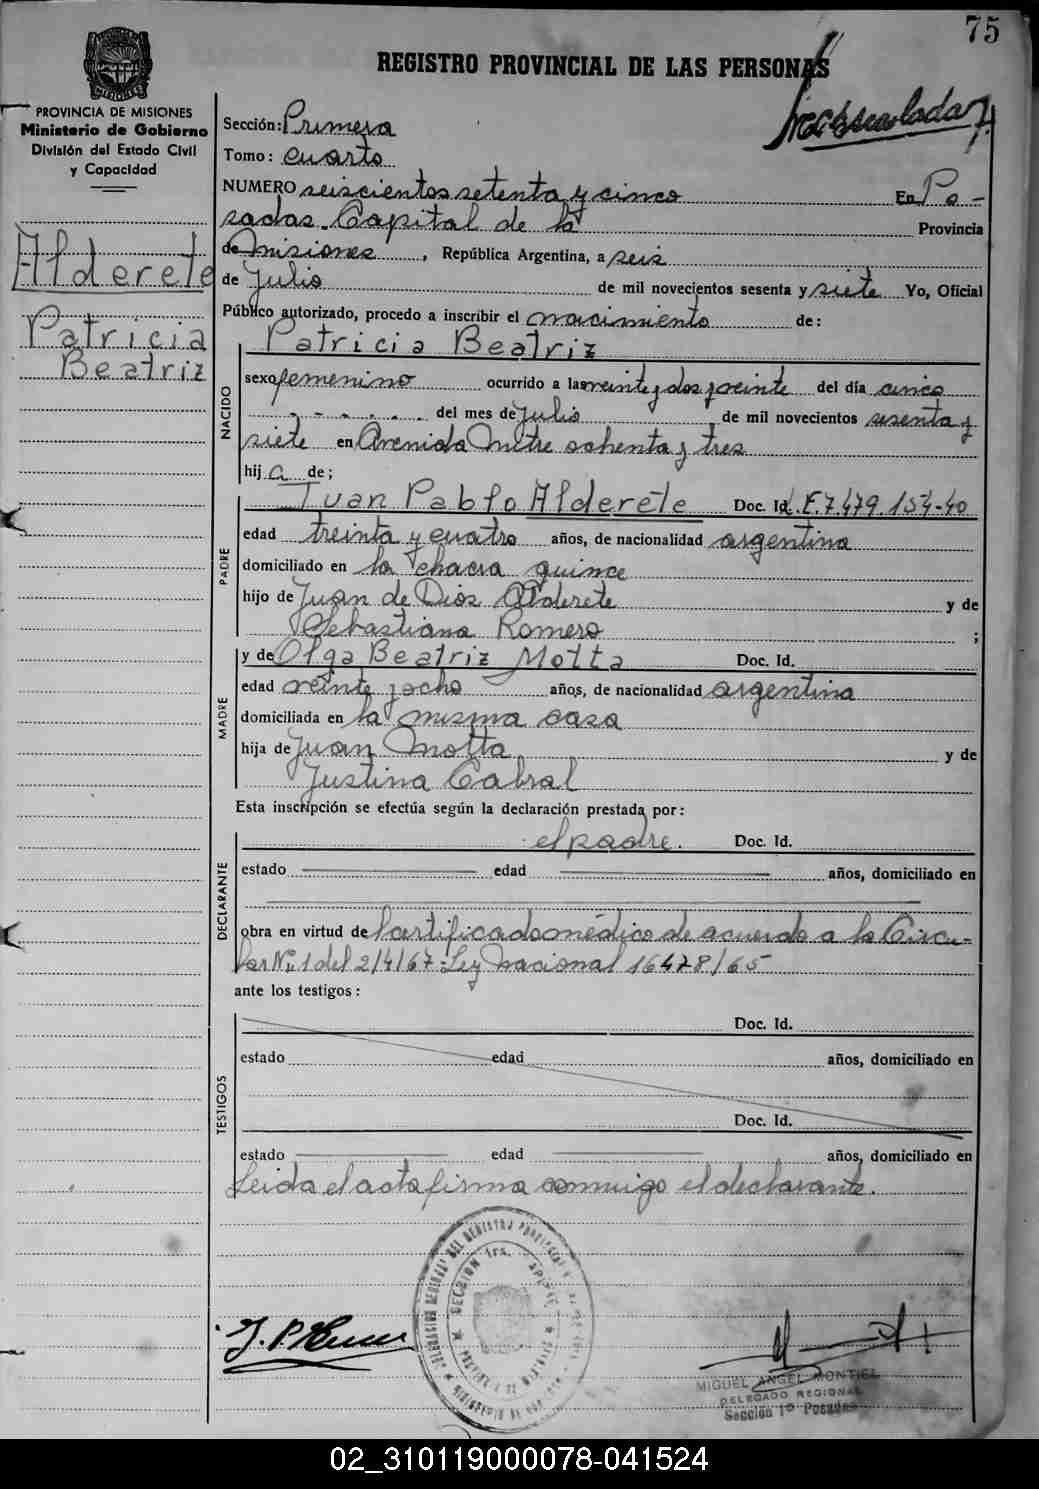 75
REGISTRO PROVINCIAL DE LAS PERSONAS
PROVINCIA DE MISIONES
Ministerio de Gobierno
División del Estado Civil
y Capacidad
Alderete
Patricia
Beatriz
Sección: Primera
Tomo: cuarto
NUMERO seiscientos setenta y cinco En Po-
sadas. Capital de la Provincia
de misiones, República Argentina, a seis
de Julio de mil novecientos sesenta y siete Yo, Oficial
Público autorizado, procedo a inscribir el nacimiento de:
Patricia Beatriz
NACIDO
sexo femenino ocurrido a las veinte y dos y veinte del día cinco
del mes de Julio de mil novecientos sesenta y
siete en Avenida Mitre ochenta y tres
hija de;
PADRE
Juan Pablo Alderete Doc. Id. L.E.7.479.154-40
edad treinta y cuatro años, de nacionalidad argentina
domiciliado en la chacra quince
hijo de Juan de Dios Alderete y de
Sebastiana Romero ;
MADRE
y de Olga Beatriz Motta Doc. Id.
edad veinte y ocho años, de nacionalidad argentina
domiciliada en la misma casa
hija de Juan Motta y de
Justina Cabral
Esta inscripción se efectúa según la declaración prestada por:
DECLARANTE
el padre. Doc. Id.
estado edad años, domiciliado en
obra en virtud de certificado médico de acuerdo a la Circu-
lar Nº 1 del 2/4/67-Ley nacional 16478/65
ante los testigos:
TESTIGOS
Doc. Id.
estado edad años, domiciliado en
Doc. Id.
estado edad años, domiciliado en
Leida el acta firma conmigo el declarante.
MIGUEL ANGEL MONTIEL
DELEGADO REGIONAL
Sección 1º Posadas
02_310119000078-041524